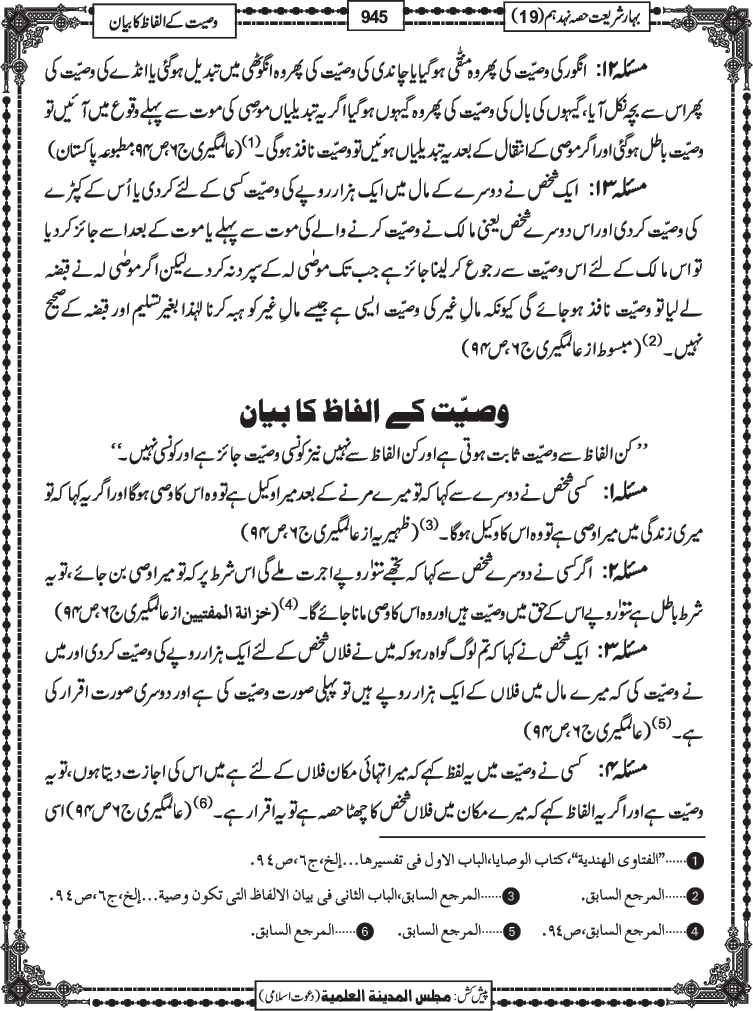 بہار شریعت حصہ نہدہم (19)
945
وصیت کے الفاظ کا بیان
مسئلہ ۱۲: انگور کی وصیت کی پھر وہ منقّٰی ہوگیا یا چاندی کی وصیت کی پھر وہ انگوٹھی میں تبدیل ہوگئی یا انڈے کی وصیت کی
پھر اس سے بچہ نکل آیا، گیہوں کی بال کی وصیت کی پھر وہ گیہوں ہوگیا اگر یہ تبدیلیاں موصی کی موت سے پہلے وقوع میں آئیں تو
وصیت باطل ہوگئی اور اگر موصی کے انتقال کے بعد یہ تبدیلیاں ہوئیں تو وصیت نافذ ہوگی۔(1) (عالمگیری ج۶، ص۹۴، مطبوعہ پاکستان)
مسئلہ ۱۳: ایک شخص نے دوسرے کے مال میں ایک ہزار روپے کی وصیت کسی کے لئے کردی یا اُس کے کپڑے
کی وصیت کردی اور اس دوسرے شخص یعنی مالک نے وصیت کرنے والے کی موت سے پہلے یا موت کے بعد اسے جائز کر دیا
تو اس مالک کے لئے اس وصیت سے رجوع کر لینا جائز ہے جب تک موصٰی لہ کے سپرد نہ کر دے لیکن اگر موصٰی لہ نے قبضہ
لے لیا تو وصیت نافذ ہو جائے گی کیونکہ مالِ غیر کی وصیت ایسی ہے جیسے مالِ غیر کو ہبہ کرنا لہٰذا بغیر تسلیم اور قبضہ کے صحیح
نہیں۔(2) (مبسوط از عالمگیری ج۶، ص۹۴)
وصیّت کے الفاظ کا بیان
’’کن الفاظ سے وصیّت ثابت ہوتی ہے اور کن الفاظ سے نہیں نیز کونسی وصیّت جائز ہے اور کونسی نہیں۔‘‘
مسئلہ ۱: کسی شخص نے دوسرے سے کہا کہ تو میرے مرنے کے بعد میرا وکیل ہے تو وہ اس کا وصی ہوگا اور اگر یہ کہا کہ تو
میری زندگی میں میرا وصی ہے تو وہ اس کا وکیل ہوگا۔(3) (ظہیریہ از عالمگیری ج۶، ص۹۴)
مسئلہ ۲: اگر کسی نے دوسرے شخص سے کہا کہ تجھے سو۱۰۰ روپے اجرت ملے گی اس شرط پر کہ تو میرا وصی بن جائے، تو یہ
شرط باطل ہے سو۱۰۰ روپے اس کے حق میں وصیت ہیں اور وہ اس کا وصی مانا جائے گا۔(4) (خزانة المفتیین از عالمگیری ج۶، ص۹۴)
مسئلہ ۳: ایک شخص نے کہا کہ تم لوگ گواہ رہو کہ میں نے فلاں شخص کے لئے ایک ہزار روپے کی وصیّت کر دی اور میں
نے وصیّت کی کہ میرے مال میں فلاں کے ایک ہزار روپے ہیں تو پہلی صورت وصیّت کی ہے اور دوسری صورت اقرار کی
ہے۔(5) (عالمگیری ج۶، ص۹۴)
مسئلہ ۴: کسی نے وصیّت میں یہ لفظ کہے کہ میرا تہائی مکان فلاں کے لئے ہے میں اس کی اجازت دیتا ہوں، تو یہ
وصیّت ہے اور اگر یہ الفاظ کہے کہ میرے مکان میں فلاں شخص کا چھٹا حصہ ہے تو یہ اقرار ہے۔(6) (عالمگیری ج۶ ص۹۴) اسی
1 ......”الفتاوی الهندیة“،کتاب الوصایا،الباب الاول فی تفسیرها...إلخ،ج٦،ص٩٤.
2 ......المرجع السابق. 3 ......المرجع السابق،الباب الثانی فی بیان الالفاظ التی تکون وصیة...إلخ،ج٦،ص٩٤.
4 ......المرجع السابق،ص٩٤. 5 ......المرجع السابق. 6 ......المرجع السابق.
پیش کش: مجلس المدینة العلمیة (دعوت اسلامی)